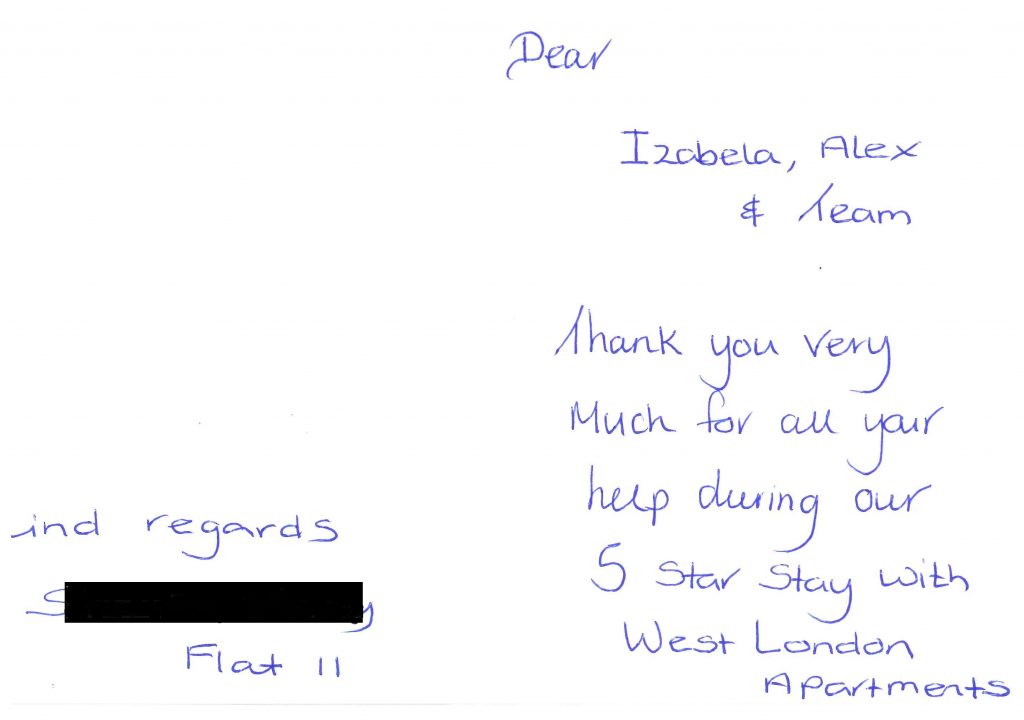 Dear
Izabela, Alex
& Team
Thank you very
Much for all your
help during our
5 Star Stay with
West London
Apartments
ind regards
Flat 11